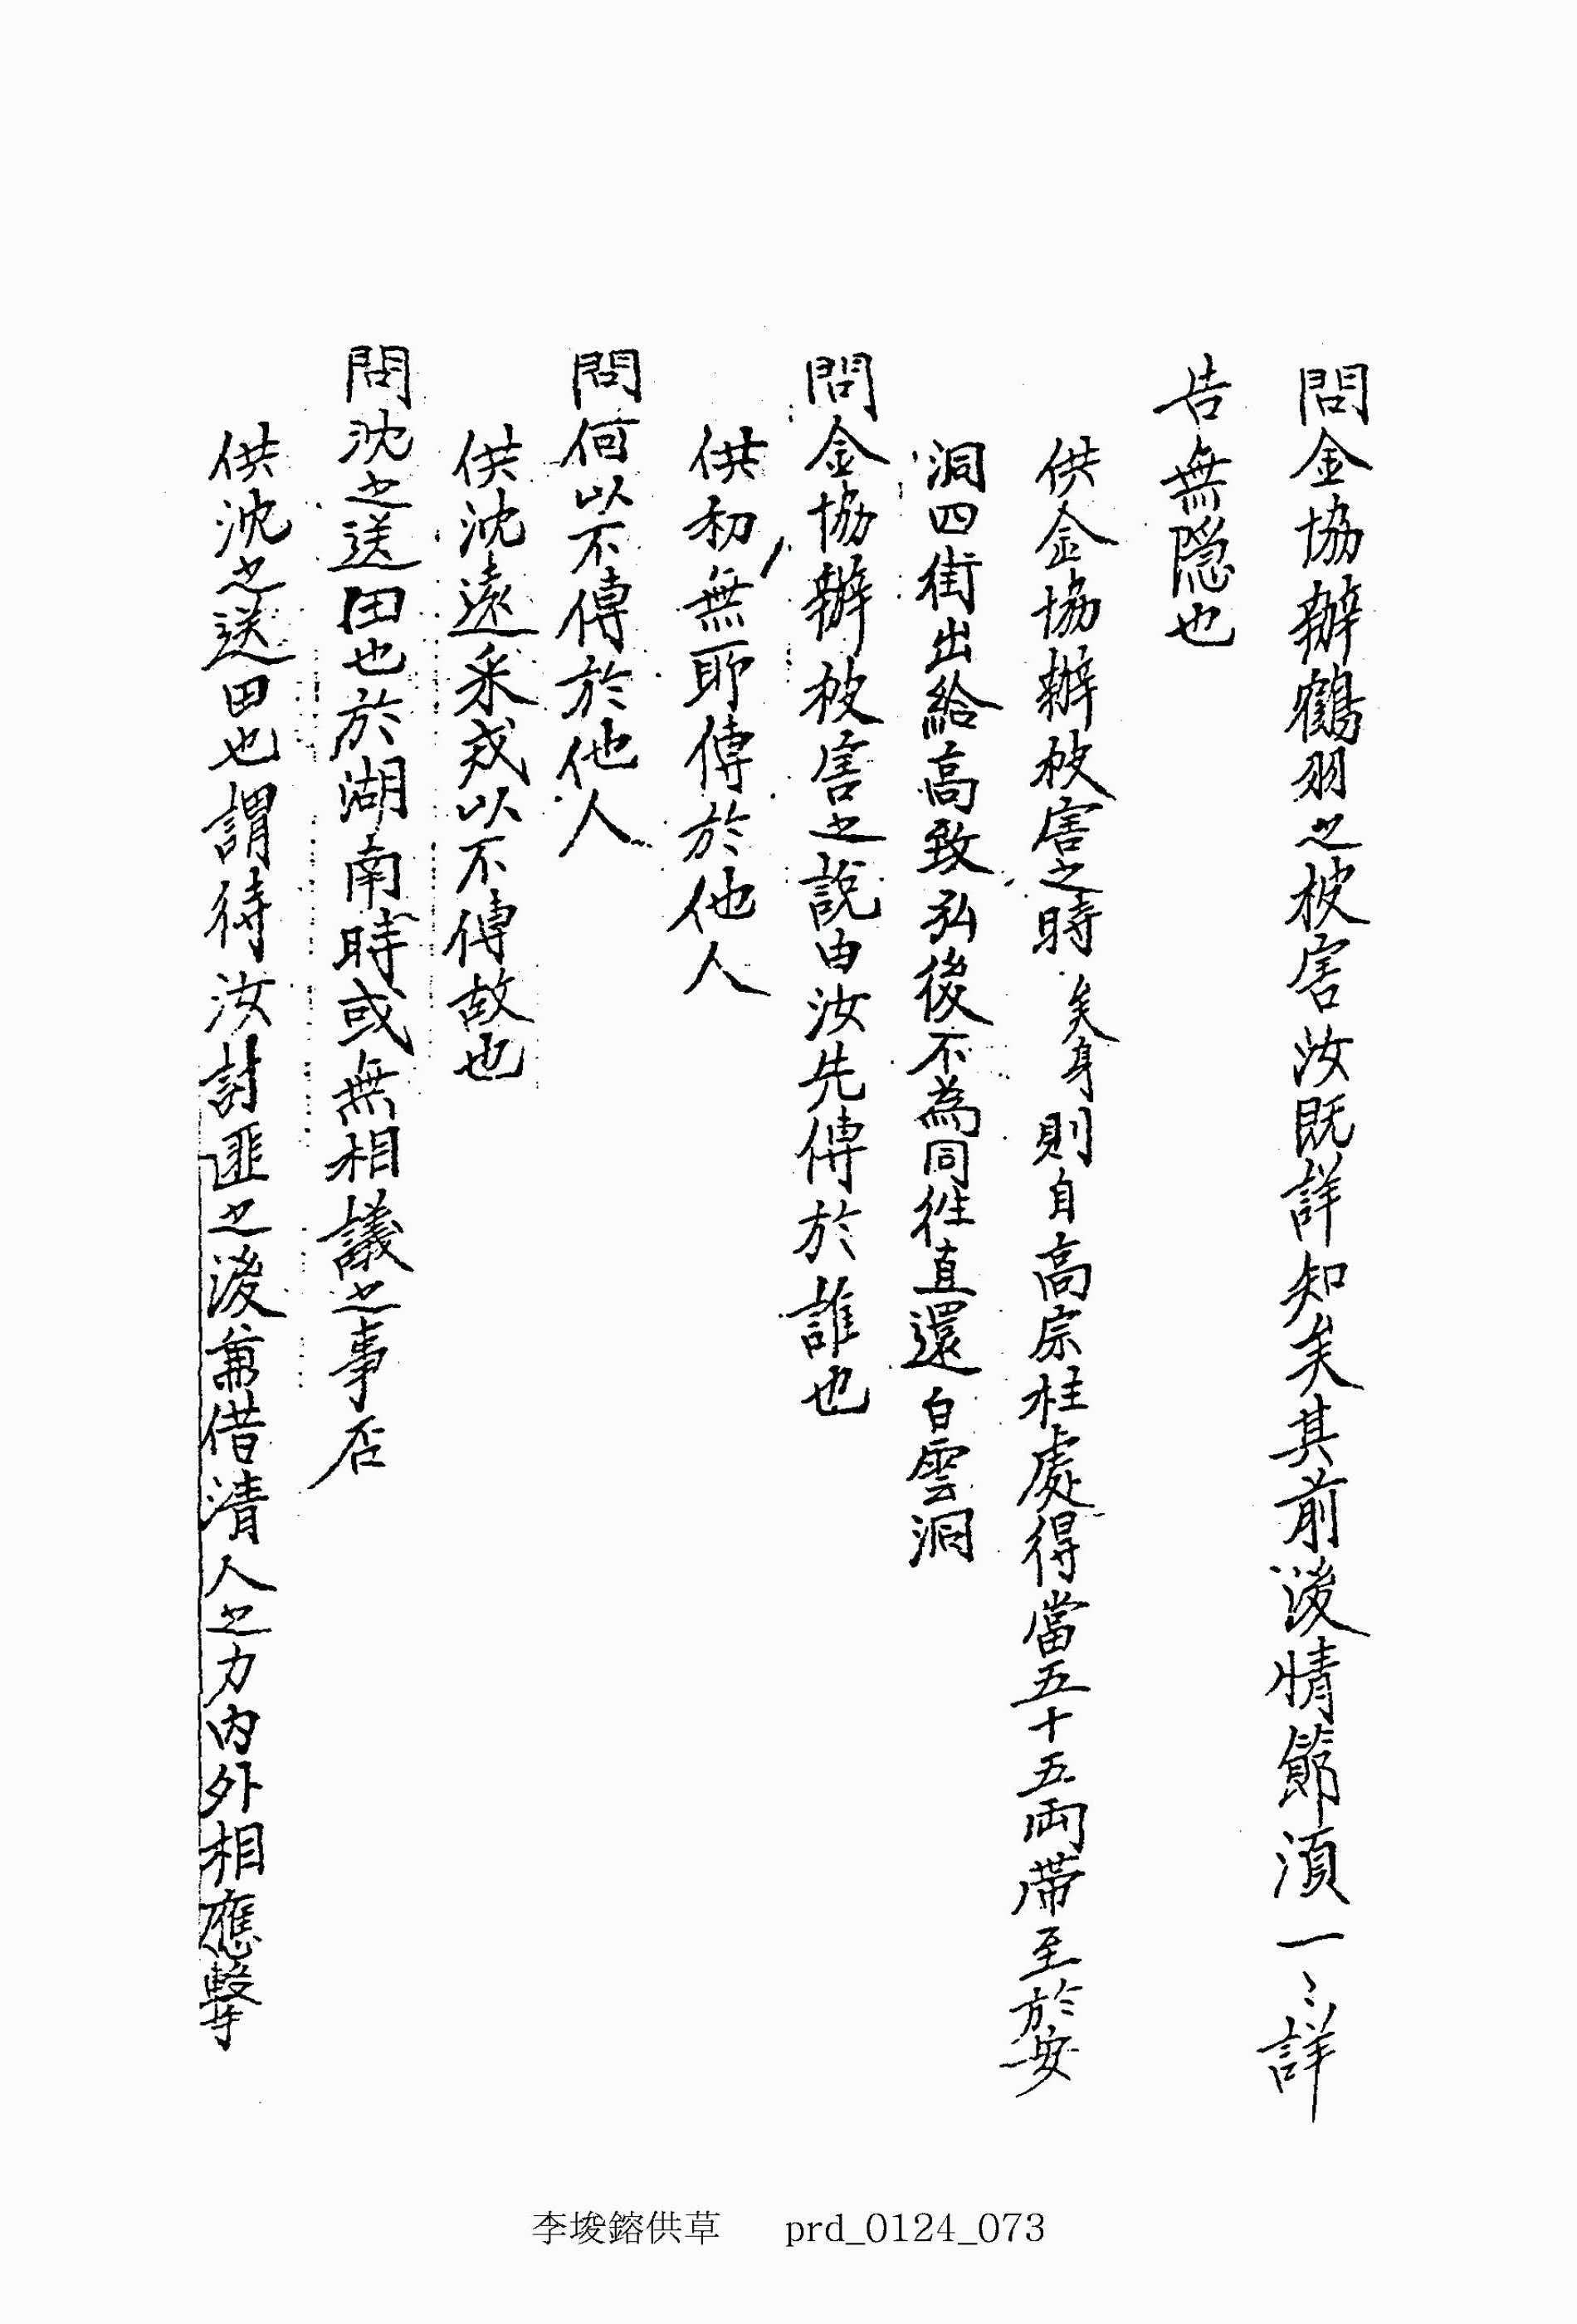 問金協辦鶴羽之被害汝既詳知矣其前後情節須一〻詳
告無隱也
供金協辦被害之時矣身則自高宗柱處得當五十五両帶至於安
洞四街出給高致弘後不爲同徃直還白雲洞
問金協辦被害之說由汝先傳於誰也
供初無耶傳於他人
問何以不傳於他人
供沈遠釆戒以不傳故也
問沈之送田也於湖南時或無相議之事否
供沈之送田也謂待汝討匪之後兼借清人之力內外相應擊
李埈鎔供草 prd_0124_073